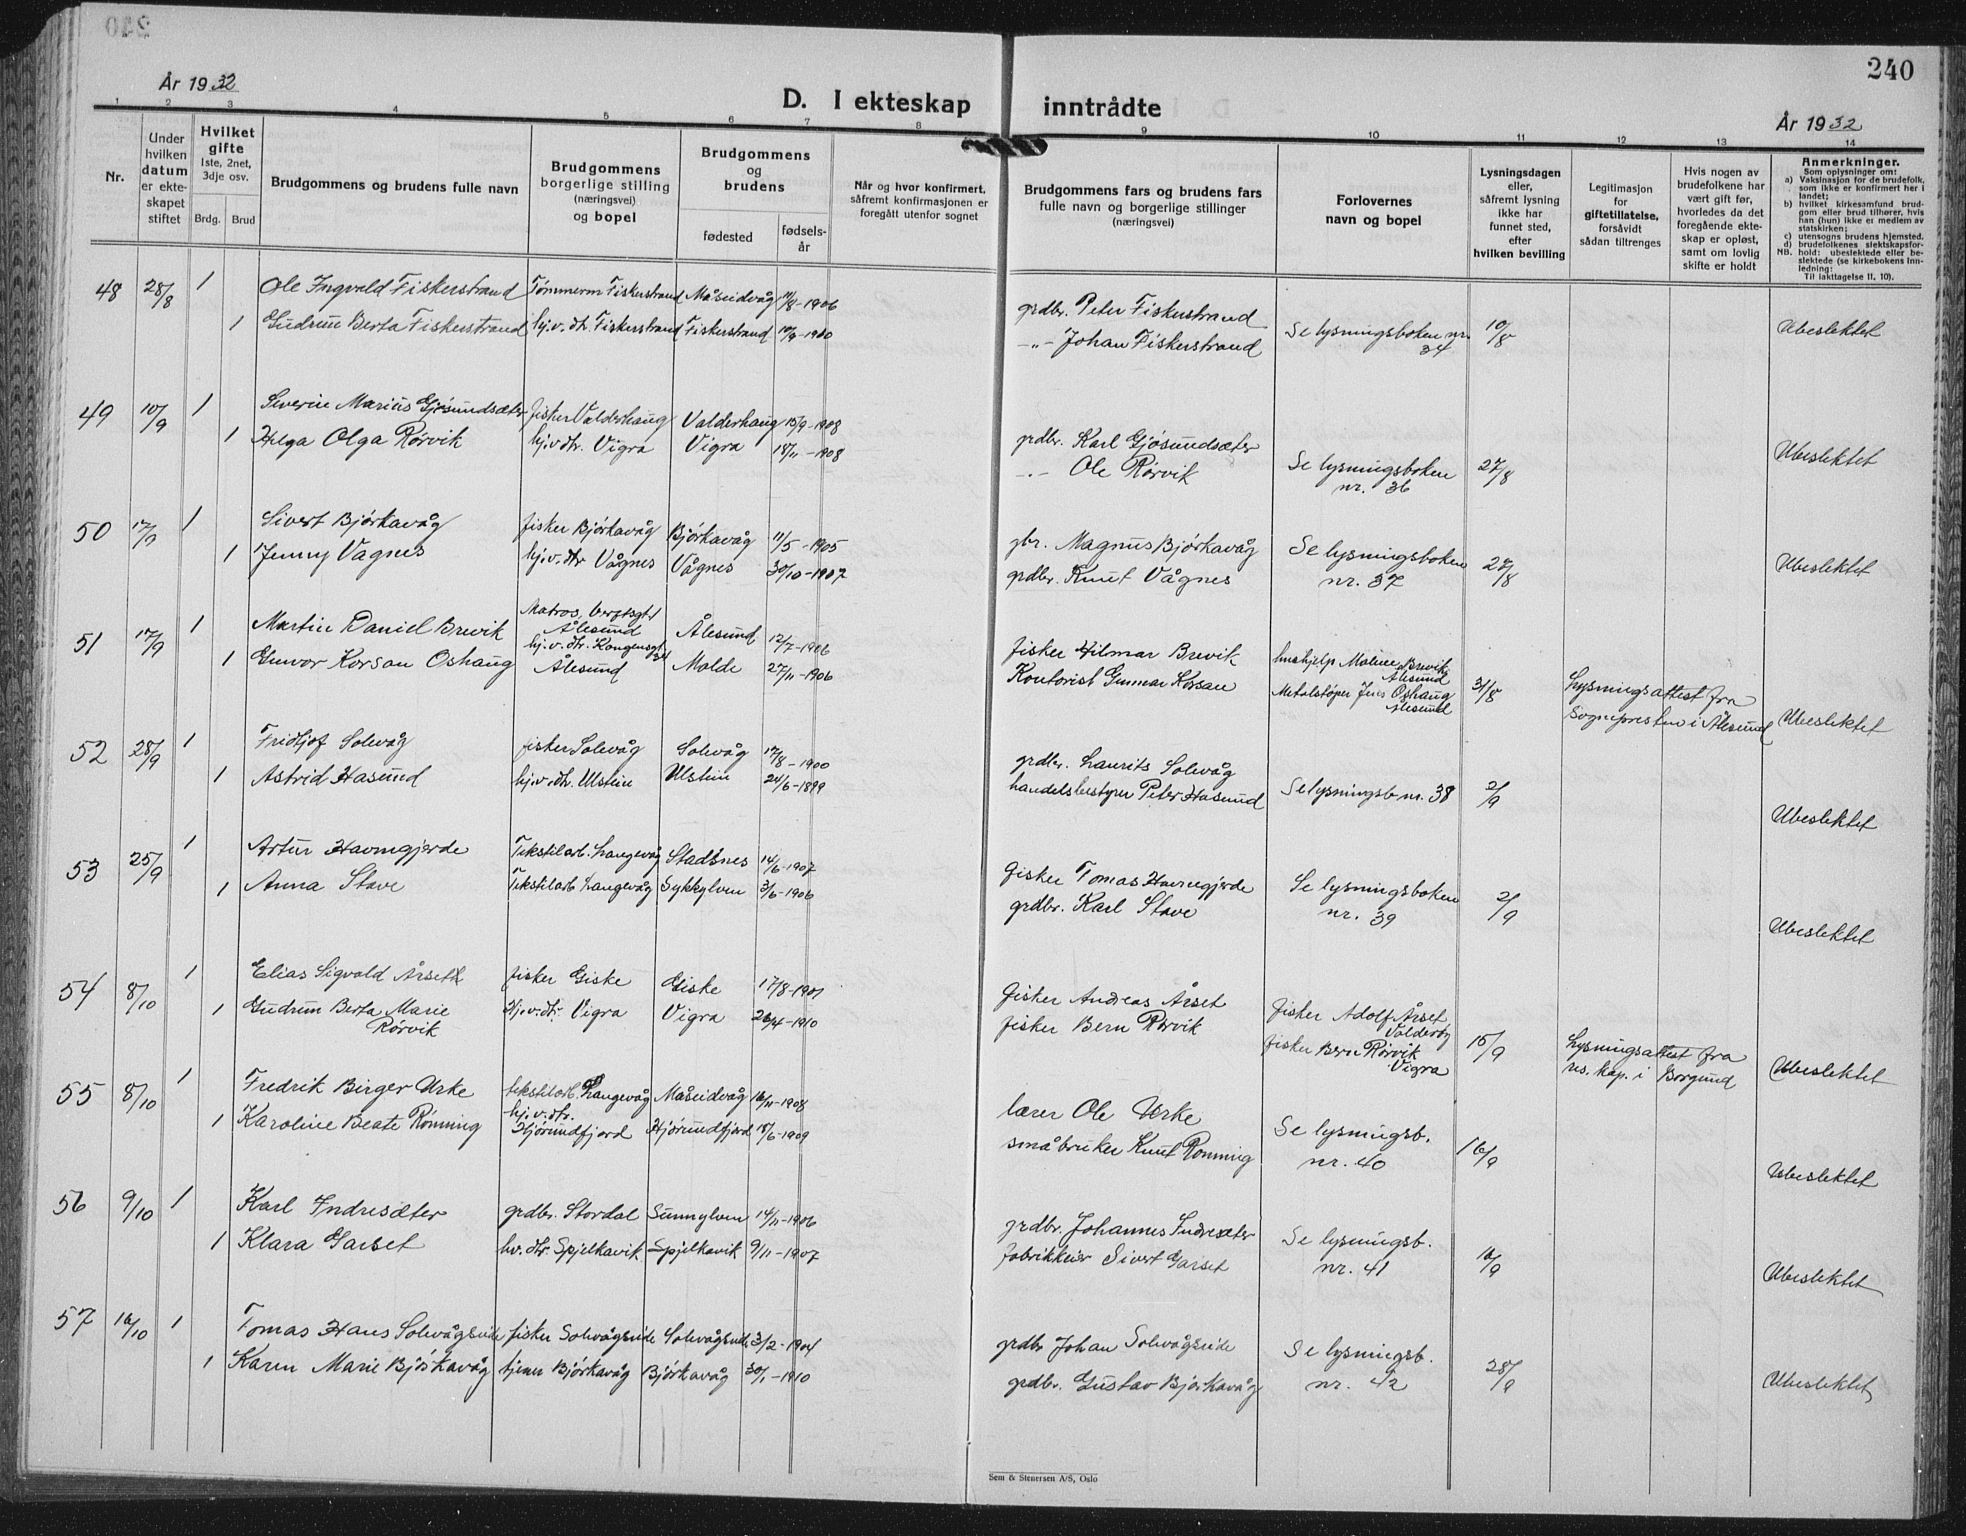 240
År 1932
D. I ekteskap inntrådte
År 1932
1 2 3 4 5 6 7 8 9 10 11 12 13 14
Nr.
Under hvilken datum er ekteskapet stiftet
Hvilket gifte
1ste, 2net, 3dje osv.
Brdg. Brud
Brudgommens og brudens fulle navn
Brudgommens borgerlige stilling (næringsvei) og bopel
Brudgommens og brudens
fødested
fødselsår
Når og hvor konfirmert, såfremt konfirmasjonen er foregått utenfor sognet
Brudgommens fars og brudens fars fulle navn og borgerlige stillinger (næringsvei)
Forlovernes navn og bopel
Lysningsdagen eller, såfremt lysning ikke har funnet sted, efter hvilken bevilling
Legitimasjon for giftetillatelse, forsåvidt sådan tiltrenges
Hvis nogen av brudefolkene har vært gift før, hvorledes da det foregående ekteskap er opløst, samt om lovlig skifte er holdt
Anmerkninger.
Som oplysninger om:
a) Vaksinasjon for de brudefolk, som ikke er konfirmert her i landet;
b) hvilket kirkesamfund brudgom eller brud tilhører, hvis han (hun) ikke er medlem av statskirken;
c) utensogns brudens hjemsted.
d) brudefolkenes slektskapsforhold: ubeslektede eller beslektede (se kirkebokens innledning:
NB. Til iakttagelse 11, 10).
48 28/8 1 Ole Ingvald Fiskerstrand Tømmerm Fiskerstrand Måseidvåg 11/8-1906 grdbr. Peter Fiskerstrand
1 Gudrun Berta Fiskerstrand hj.v. dtr. Fiskerstrand Fiskerstrand 10/9-1910 -"- Johan Fiskerstrand Se lysningsboken nr. 34 10/8 Ubeslektet
49 10/9 1 Severin Marius Gjøsundsæter fisker Valderhaug Valderhaug 15/9-1908 grdbr. Karl Gjøsundsæter
1 Helga Olga Rørvik hj.v dtr. Vigra Vigra 18/11-1908 -"- Ole Rørvik Se lysningsboken nr. 36 27/8 Ubeslektet
50 17/9 1 Sivert Bjørkavåg fisker Bjørkavåg Bjørkavåg 11/5-1905 gbr. Magnus Bjørkavåg
1 Jenny Vagnes hj.v. dtr Vågnes Vågnes 30/10-1907 grdbr. Knut Vågnes Se lysningsboken nr. 37 27/8 Ubeslektet
51 17/9 1 Martin Daniel Brevik Matros, Verftsgt 1 Ålesund Ålesund 12/7-1906 fisker Hilmar Brevik hushjelp Malene Brevik Ålesund
1 Gunvor Korsan Oshaug hj.v. dtr. Kongensgt Ålesund Molde 27/11-1906 Kontorist Gunnar Korsan Metalstøper Jens Oshaug Ålesund 31/8 Lysningsattest fra sognepresten i Ålesund Ubeslektet
52 28/9 1 Fridtjof Solevåg fisker Solevåg Solevåg 17/8-1900 grdbr. Laurits Solevåg
1 Astrid Hasund hj.v. dtr. Ulstein Ulstein 24/6-1899 handelsbestyrer Peter Hasund Se lysningsb nr. 38 2/9 Ubeslektet
53 25/9 1 Artur Havnegjerde Tekstilarb. Langevåg Stadsnes 14/6-1907 fisker Tomas Havnegjerde
1 Anna Stave Tekstilarb Langevåg Sykkylven 3/6-1906 grdbr. Karl Stave Se lysningsboken nr. 39 2/9 Ubeslektet
54 8/10 1 Elias Sigvald Årseth fisker Giske Giske 17/8-1901 fisker Andreas Årset fisker Adolf Årset Valderøy
1 Gudrun Berta Marie Rørvik Hj.v. dtr. Vigra Vigra 26/4-1910 fisker Bern Rørvik fisker Bern Rørvik Vigra 15/9 Lysningsattest fra res. kap. i Borgund Ubeslektet
55 8/10 1 Fredrik Birger Urke tekstilarb. Langevåg Måseidvåg 16/11-1908 lærer Ole Urke
1 Karoline Beate Rønning hj.v. dtr. Hjørundfjord Hjørundfjord 18/6-1909 småbruker Knut Rønning Se lysningsb. nr. 40 16/9 Ubeslektet
56 9/10 1 Karl Indresæter grdbr. Stordal Sunnylven 14/11-1906 grdbr. Johannes Indresæter
1 Klara Garset hv. dtr. Spjelkavik Spjelkavik 9/11-1907 fabrikkeier Sivert Garset Se lysningsb. nr. 41 16/9 Ubeslektet
57 16/10 1 Tomas Hans Solevågseide fisker Solvågseide Solevågseide 3/2-1904 grdbr Johan Solevågseide
1 Karen Marie Bjørkavåg tjener Bjørkavåg Bjørkavåg 30/1-1910 grdbr. Gustav Bjørkavåg Se lysningsb. nr. 42 28/9 Ubeslektet
Sem & Stenersen A/S, Oslo